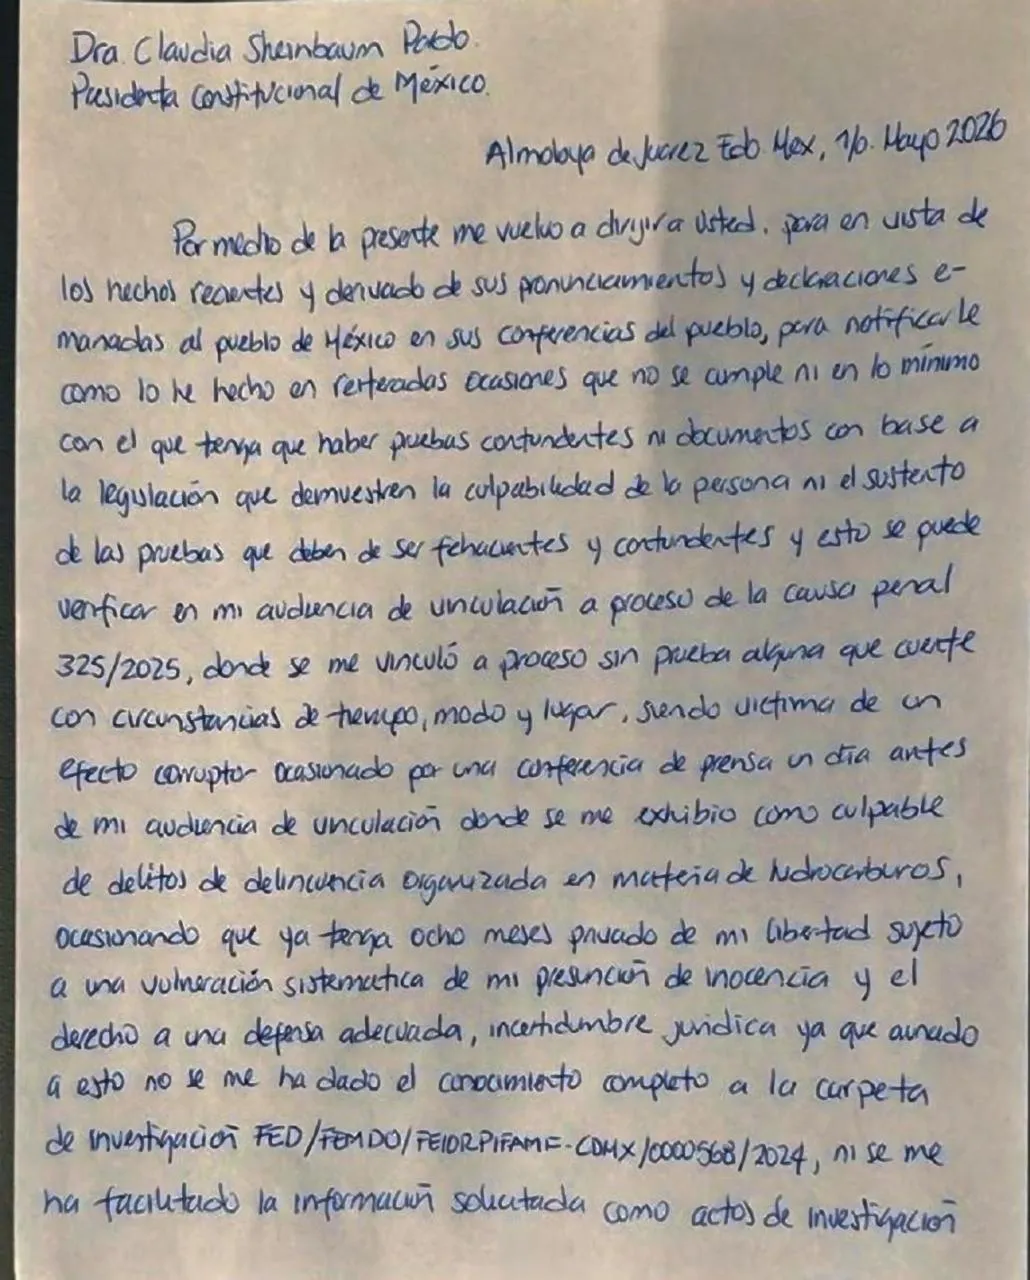 Dra. Claudia Sheinbaum Pardo.
Presidenta Constitucional de México.
Almoloya de Juarez Edo. Mex, 1/6. Mayo 2026
Por medio de la presente me vuelvo a dirigir a usted, para en vista de
los hechos recientes y derivado de sus pronunciamientos y declaraciones e-
manadas al pueblo de México en sus conferencias del pueblo, para notificarle
como lo he hecho en reiteradas ocasiones que no se cumple ni en lo mínimo
con el que tenga que haber pruebas contundentes ni documentos con base a
la legislación que demuestren la culpabilidad de la persona ni el sustento
de las pruebas que deben de ser fehacientes y contundentes y esto se puede
verificar en mi audiencia de vinculación a proceso de la causa penal
325/2025, donde se me vinculó a proceso sin prueba alguna que cuente
con circunstancias de tiempo, modo y lugar, siendo victima de un
efecto corruptor ocasionado por una conferencia de prensa un día antes
de mi audiencia de vinculación donde se me exhibio como culpable
de delitos de delincuencia organizada en materia de hidrocarburos,
ocasionando que ya tenga ocho meses privado de mi libertad sujeto
a una vulneración sistematica de mi presunción de inocencia y el
derecho a una defensa adecuada, incertidumbre juridica ya que aunado
a esto no se me ha dado el conocimiento completo a la carpeta
de investigación FED/FEMDO/FEIORPIFAMF-CDMX/0000568/2024, ni se me
ha facilitado la información solicitada como actos de investigación